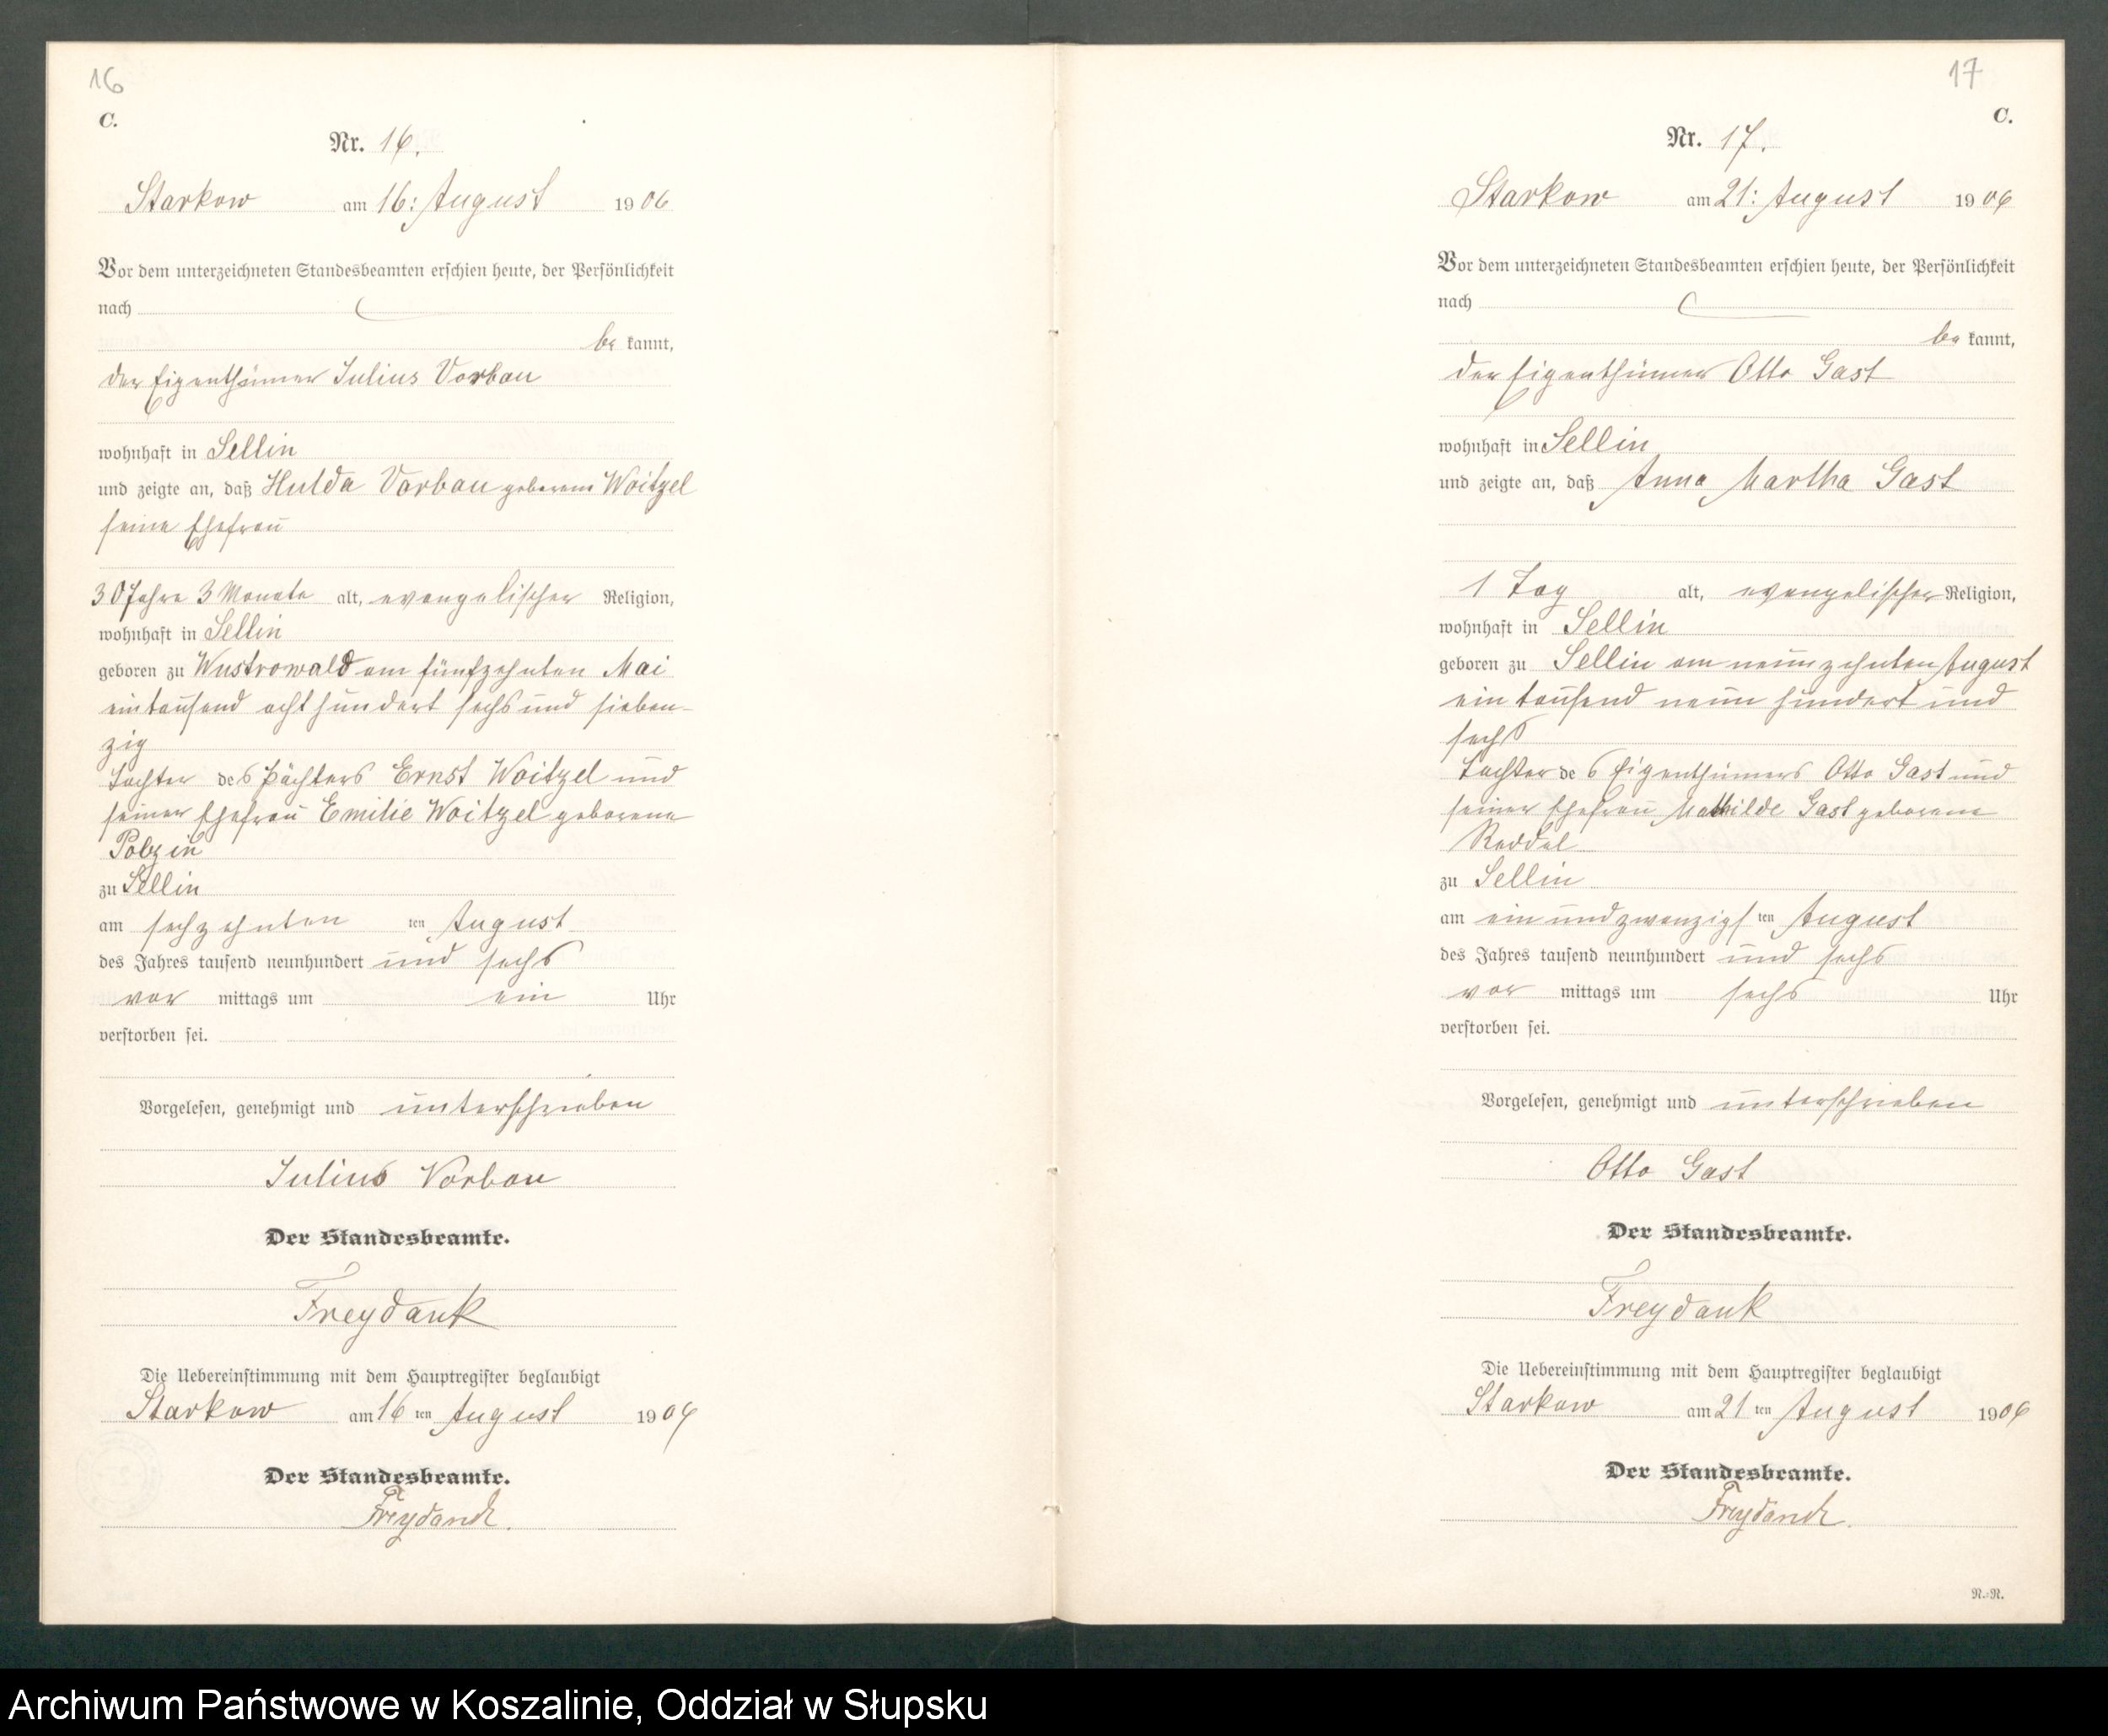 16
C.
Nr. 16.
Starkow am 16: August 1906
Vor dem unterzeichneten Standesbeamten erschien heute, der Persönlichkeit
nach
be kannt,
der Eigenthümer Julius Vorbau
wohnhaft in Sellin
und zeigte an, daß Hulda Vorbau geborene Woitzel
seine Ehefrau
30 Jahre 3 Monate alt, evangelischer Religion,
wohnhaft in Sellin
geboren zu Wustrowald am fünfzehnten Mai
eintausend achthundert sechs und sieben-
zig
Tochter des Pächters Ernst Woitzel und
seiner Ehefrau Emilie Woitzel geborene
Polzin
zu Sellin
am sechzehnten ten August
des Jahres tausend neunhundert und sechs
vor mittags um ein Uhr
verstorben sei.
Vorgelesen, genehmigt und unterschrieben
Julius Vorbau
Der Standesbeamte.
Freydank
Die Uebereinstimmung mit dem Hauptregister beglaubigt
Starkow am 16 ten August 1906
Der Standesbeamte.
Freydank.
17
C.
Nr. 17.
Starkow am 21: August 1906
Vor dem unterzeichneten Standesbeamten erschien heute, der Persönlichkeit
nach
be kannt,
der Eigenthümer Otto Gast
wohnhaft in Sellin
und zeigte an, daß Anna Martha Gast
1 Tag alt, evangelischer Religion,
wohnhaft in Sellin
geboren zu Sellin am neunzehnten August
ein tausend neun hundert und
sechs
Tochter des Eigenthümers Otto Gast und
seiner Ehefrau Mathilde Gast geborene
Reddel
zu Sellin
am ein und zwanzigs ten August
des Jahres tausend neunhundert und sechs
vor mittags um sechs Uhr
verstorben sei.
Vorgelesen, genehmigt und unterschrieben
Otto Gast
Der Standesbeamte.
Freydank
Die Uebereinstimmung mit dem Hauptregister beglaubigt
Starkow am 21 ten August 1906
Der Standesbeamte.
Freydank.
N.-N.
Archiwum Państwowe w Koszalinie, Oddział w Słupsku